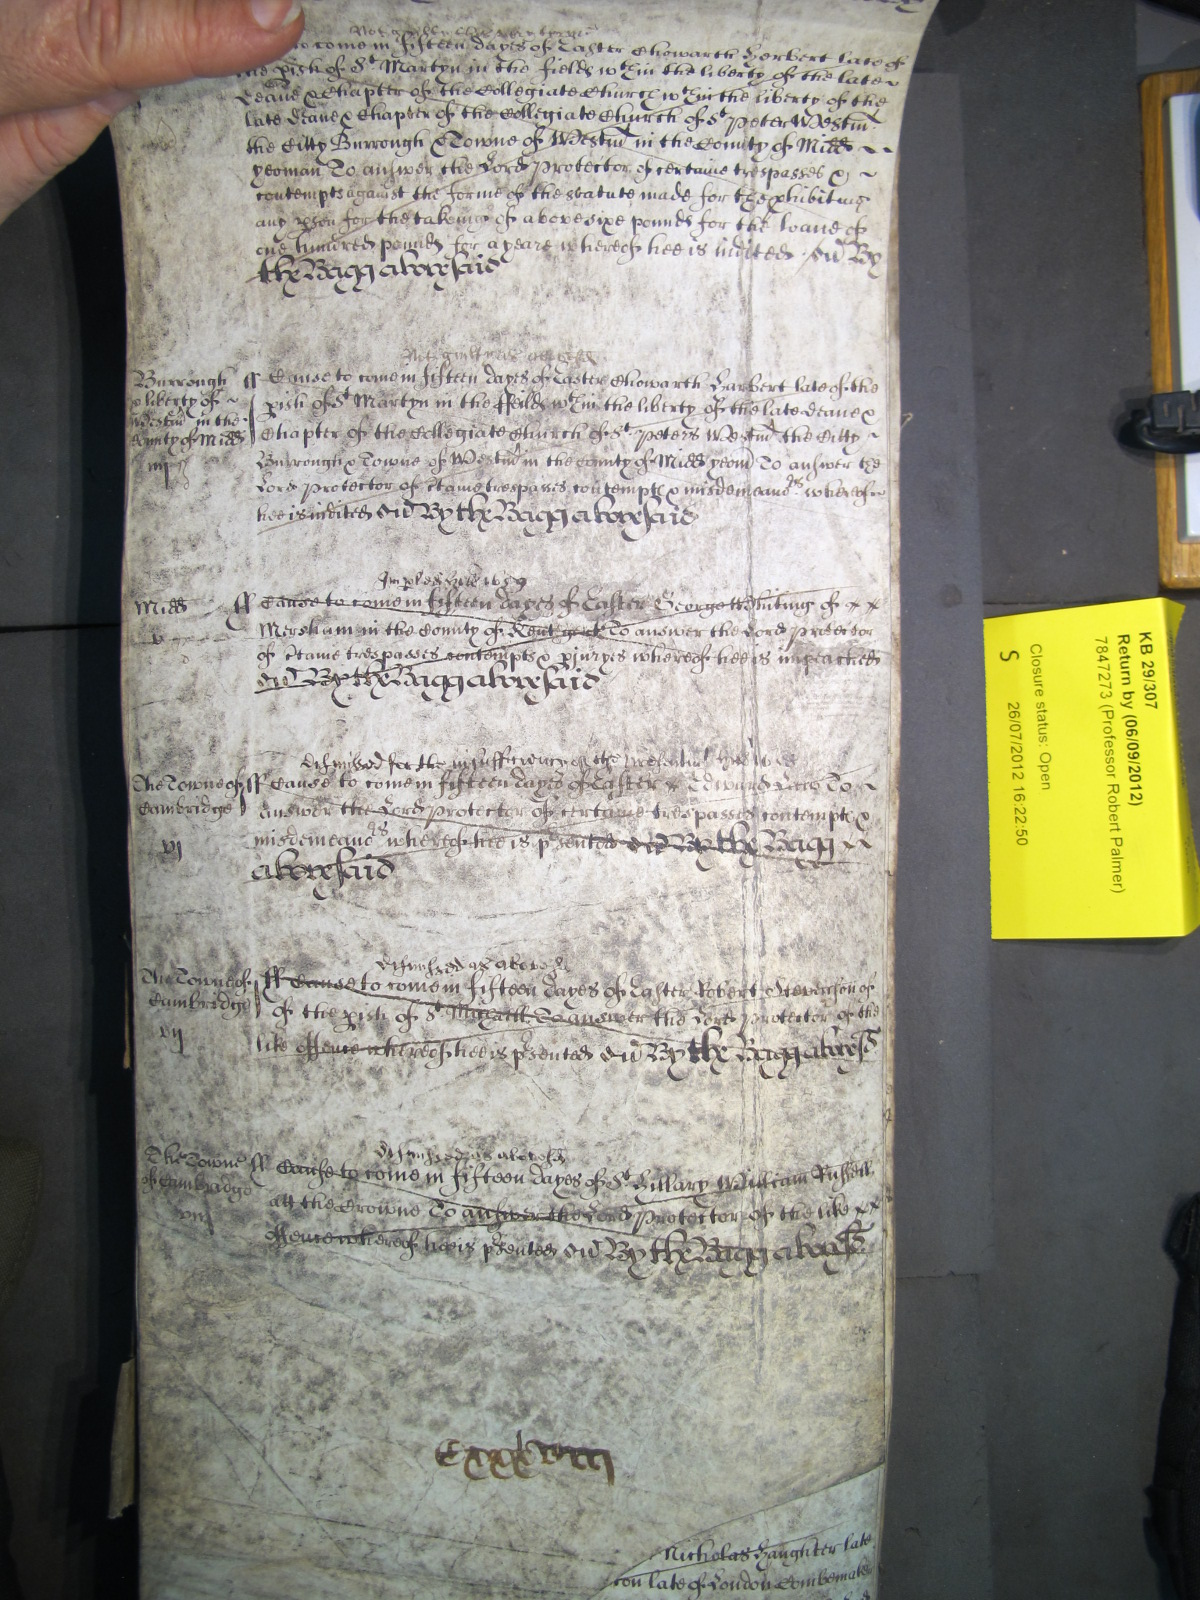 to come in fifteen dayes of Easter Edwarth Herbert late of
the pish of St Martyn in the fields wthin the liberty of the late
Deane & Chapter of the Collegiate Church wthin the liberty of the
late Deane & Chapter of the Collegiate Church of St Peter Westm
the Citty Burrough & Towne of Westm in the County of Midd
yeoman To answer the Lord Protector of certaine trespasses &
contempts against the forme of the Statute made for
any pson for the takeing of above sixe pounds for the loane of
one hundred pounds for a yeare whereof hee is indited By
the Bagg aforesaid
Not guilty as above
Burrough ss Cause to come in fifteen dayes of Easter Edwarth Harbert late of the
& liberty of pish of St Martyn in the ffeilds wthin the liberty of the late Deane &
Westm in the Chapter of the Collegiate Church of St Peters Westm the Citty
County of Midd Burrough & Towne of Westm in the County of Midd yeom To answer the
iiij Lord Protector of ctaine trespasses contempts & misdemeanrs whereof
hee is indited By the Bagg aforesaid
Midd ss Cause to come in fifteen dayes of Easter George Whiting of
v Mersham in the County of Kent To answer the Lord Protector
of ctaine trespasses contempts & pjuryes whereof hee is impeached
By the Bagg aforesaid
dismissed for the insufficiency of the
The Towne of ss Cause to come in fifteen dayes of Easter Edward To
Cambridge answer the Lord Protector of certaine trespasses contempts &
vj misdemeanrs whereof hee is psented By the Bagg
aforesaid
dismissed as above
The Towne of ss Cause to come in fifteen dayes of Easter Robert Stevenson of
Cambridge of the pish of St To answer the Lord Protector of the
vij like offence whereof hee is psented By the Bagg aforesd
dismissed as above
The Towne ss Cause to come in fifteen dayes of St Hillary William Russell
of Cambridge att the Crowne To answer the Lord Protector of the like
viij offence whereof hee is psented By the Bagg aforesd
Cxxxviij
Nicholas late
late of London Combemaker
KB 29/307
Return by (06/09/2012)
7847273 (Professor Robert Palmer)
Closure status: Open
S 26/07/2012 16:22:50